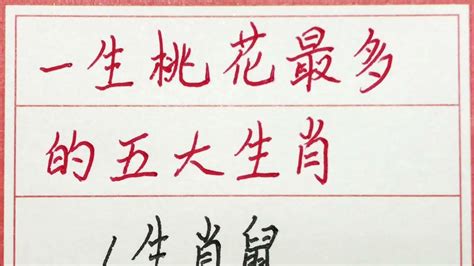 一生桃花最多
的五大生肖
1生肖鼠